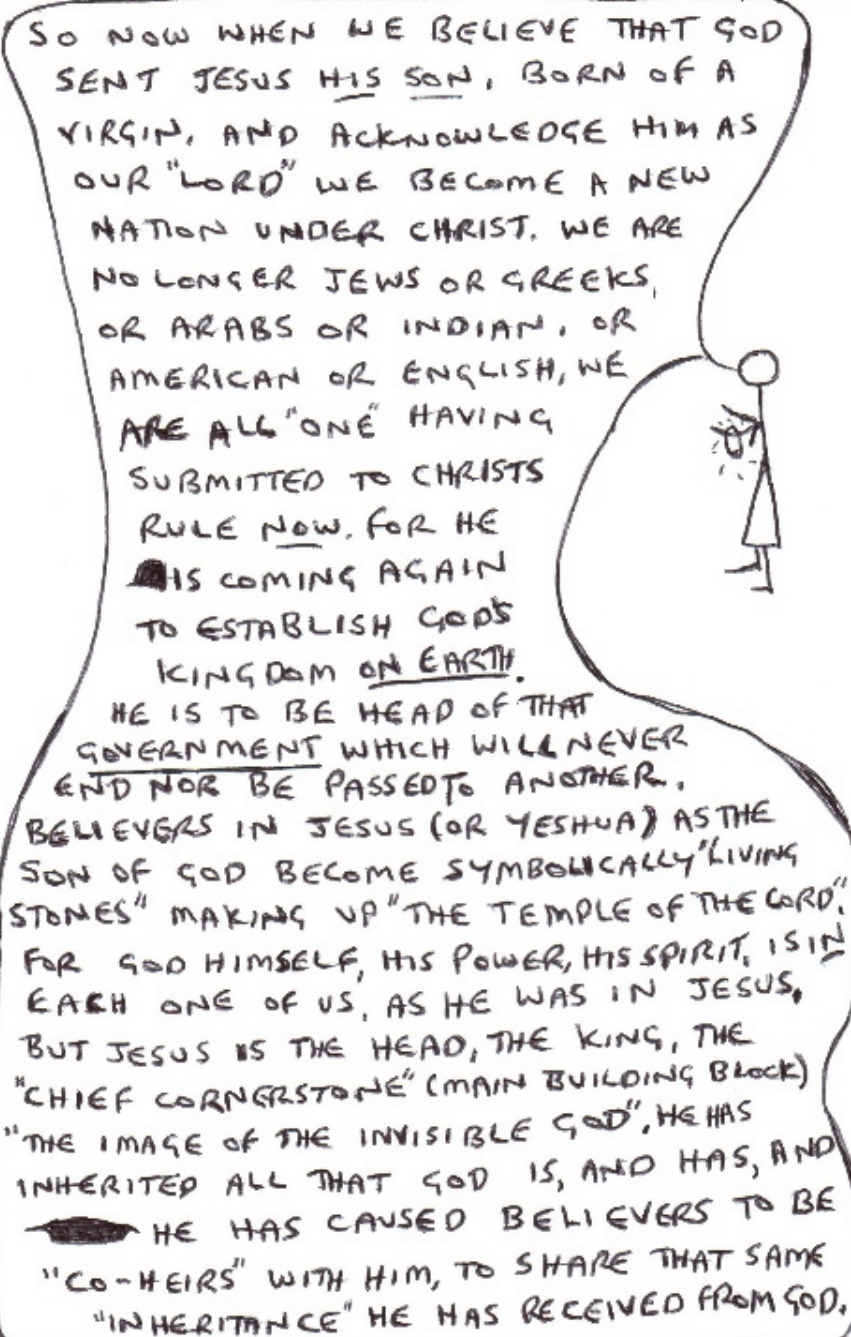 SO NOW WHEN WE BELIEVE THAT GOD
SENT JESUS HIS SON, BORN OF A
VIRGIN, AND ACKNOWLEDGE HIM AS
OUR "LORD" WE BECOME A NEW
NATION UNDER CHRIST. WE ARE
NO LONGER JEWS OR GREEKS,
OR ARABS OR INDIAN, OR
AMERICAN OR ENGLISH, WE
ARE ALL "ONE" HAVING
SUBMITTED TO CHRISTS
RULE NOW. FOR HE
IS COMING AGAIN
TO ESTABLISH GOD'S
KINGDOM ON EARTH.
HE IS TO BE HEAD OF THAT
GOVERNMENT WHICH WILL NEVER
END NOR BE PASSED TO ANOTHER.
BELIEVERS IN JESUS (OR YESHUA) AS THE
SON OF GOD BECOME SYMBOLICALLY "LIVING
STONES" MAKING UP "THE TEMPLE OF THE LORD".
FOR GOD HIMSELF, HIS POWER, HIS SPIRIT, IS IN
EACH ONE OF US, AS HE WAS IN JESUS.
BUT JESUS IS THE HEAD, THE KING, THE
"CHIEF CORNERSTONE" (MAIN BUILDING BLOCK)
"THE IMAGE OF THE INVISIBLE GOD". HE HAS
INHERITED ALL THAT GOD IS, AND HAS, AND
HE HAS CAUSED BELIEVERS TO BE
"CO-HEIRS" WITH HIM, TO SHARE THAT SAME
"INHERITANCE" HE HAS RECEIVED FROM GOD.